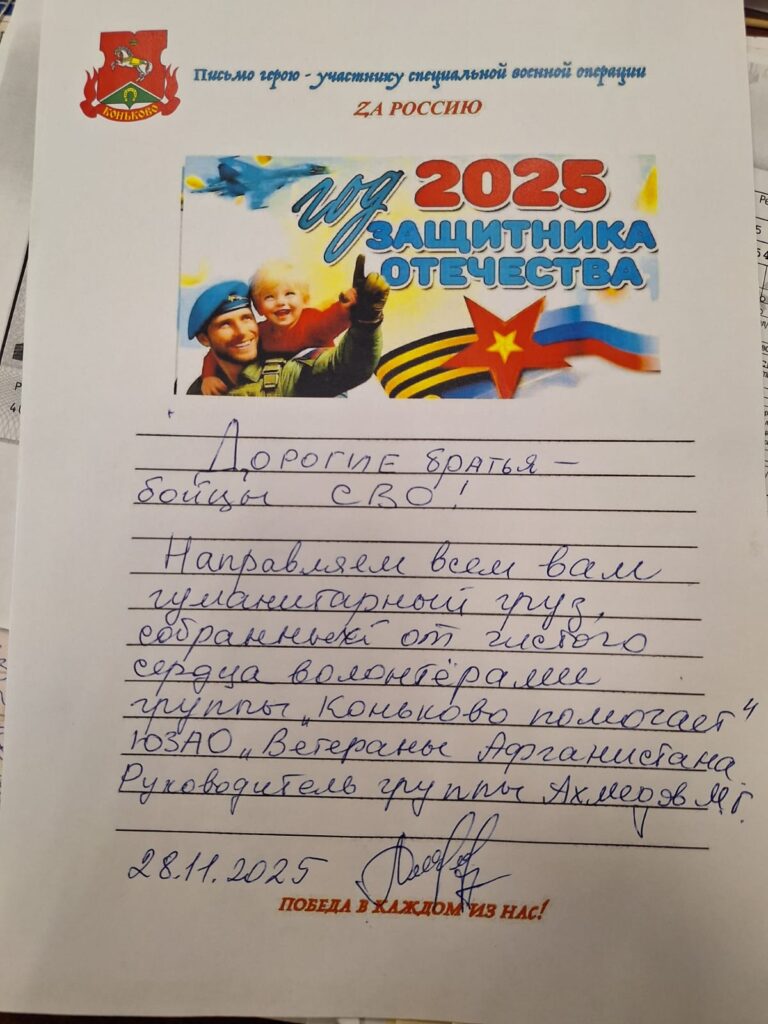 КОНЬКОВО
Письмо герою - участнику специальной военной операции
ZА РОССИЮ
год 2025
ЗАЩИТНИКА
ОТЕЧЕСТВА
Дорогие братья –
бойцы СВО!
Направляем всем вам
гуманитарный груз,
собранный от чистого
сердца волонтёрами
группы „Коньково помогает“
ЮЗАО „Ветераны Афганистана
Руководитель группы Ахмедов М.Г.
28.11.2025
ПОБЕДА В КАЖДОМ ИЗ НАС!